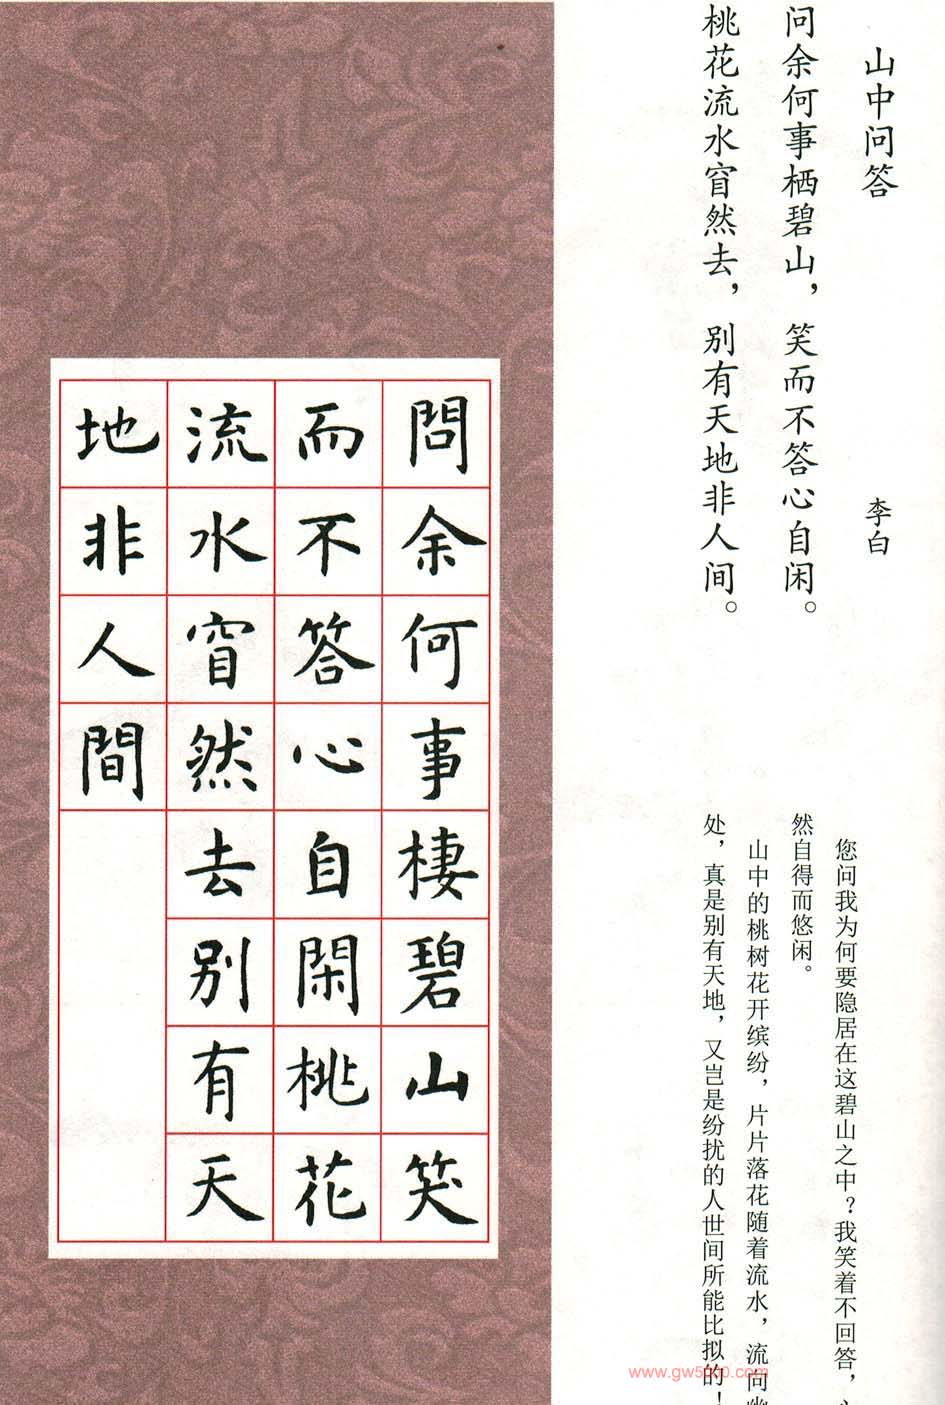 山中问答
李白
问余何事栖碧山，笑而不答心自闲。
桃花流水窅然去，别有天地非人间。
您问我为何要隐居在这碧山之中？我笑着不回答，
然自得而悠闲。
山中的桃树花开缤纷，片片落花随着流水，流向
处，真是别有天地，又岂是纷扰的人世间所能比拟的！
問余何事棲碧山笑
而不答心自閑桃花
流水窅然去别有天
地非人間
www.gw5000.com